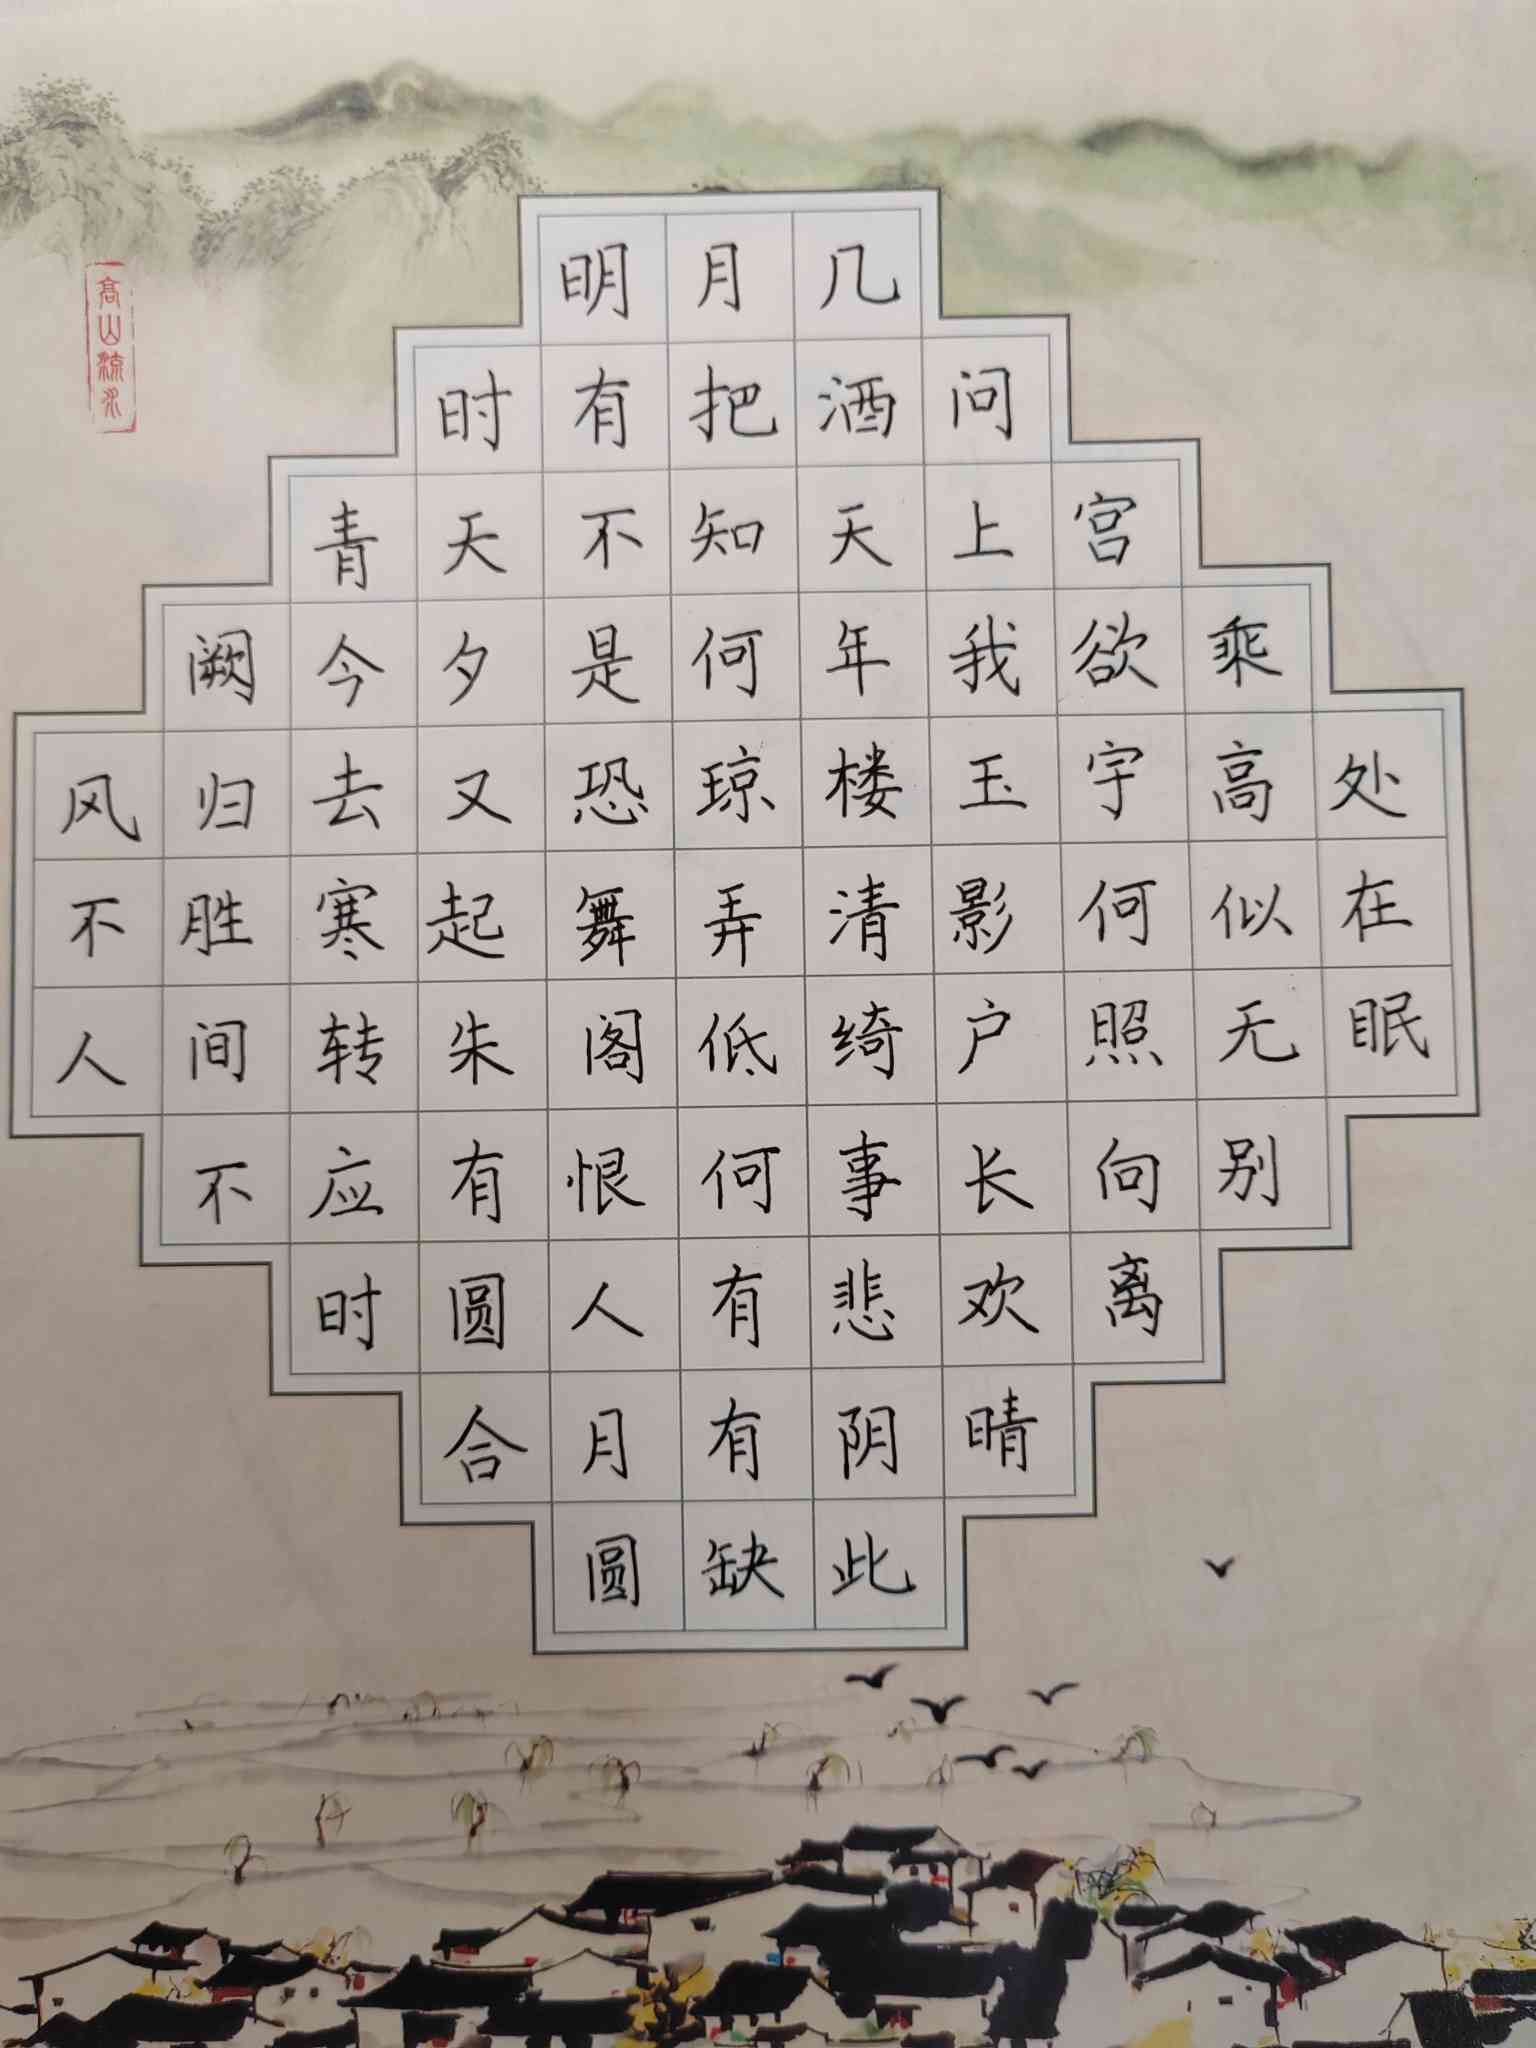 明月几
时有把酒问
青天不知天上宫
阙今夕是何年我欲乘
风归去又恐琼楼玉宇高处
不胜寒起舞弄清影何似在
人间转朱阁低绮户照无眠
不应有恨何事长向别
时圆人有悲欢离
合月有阴晴
圆缺此
高山流水